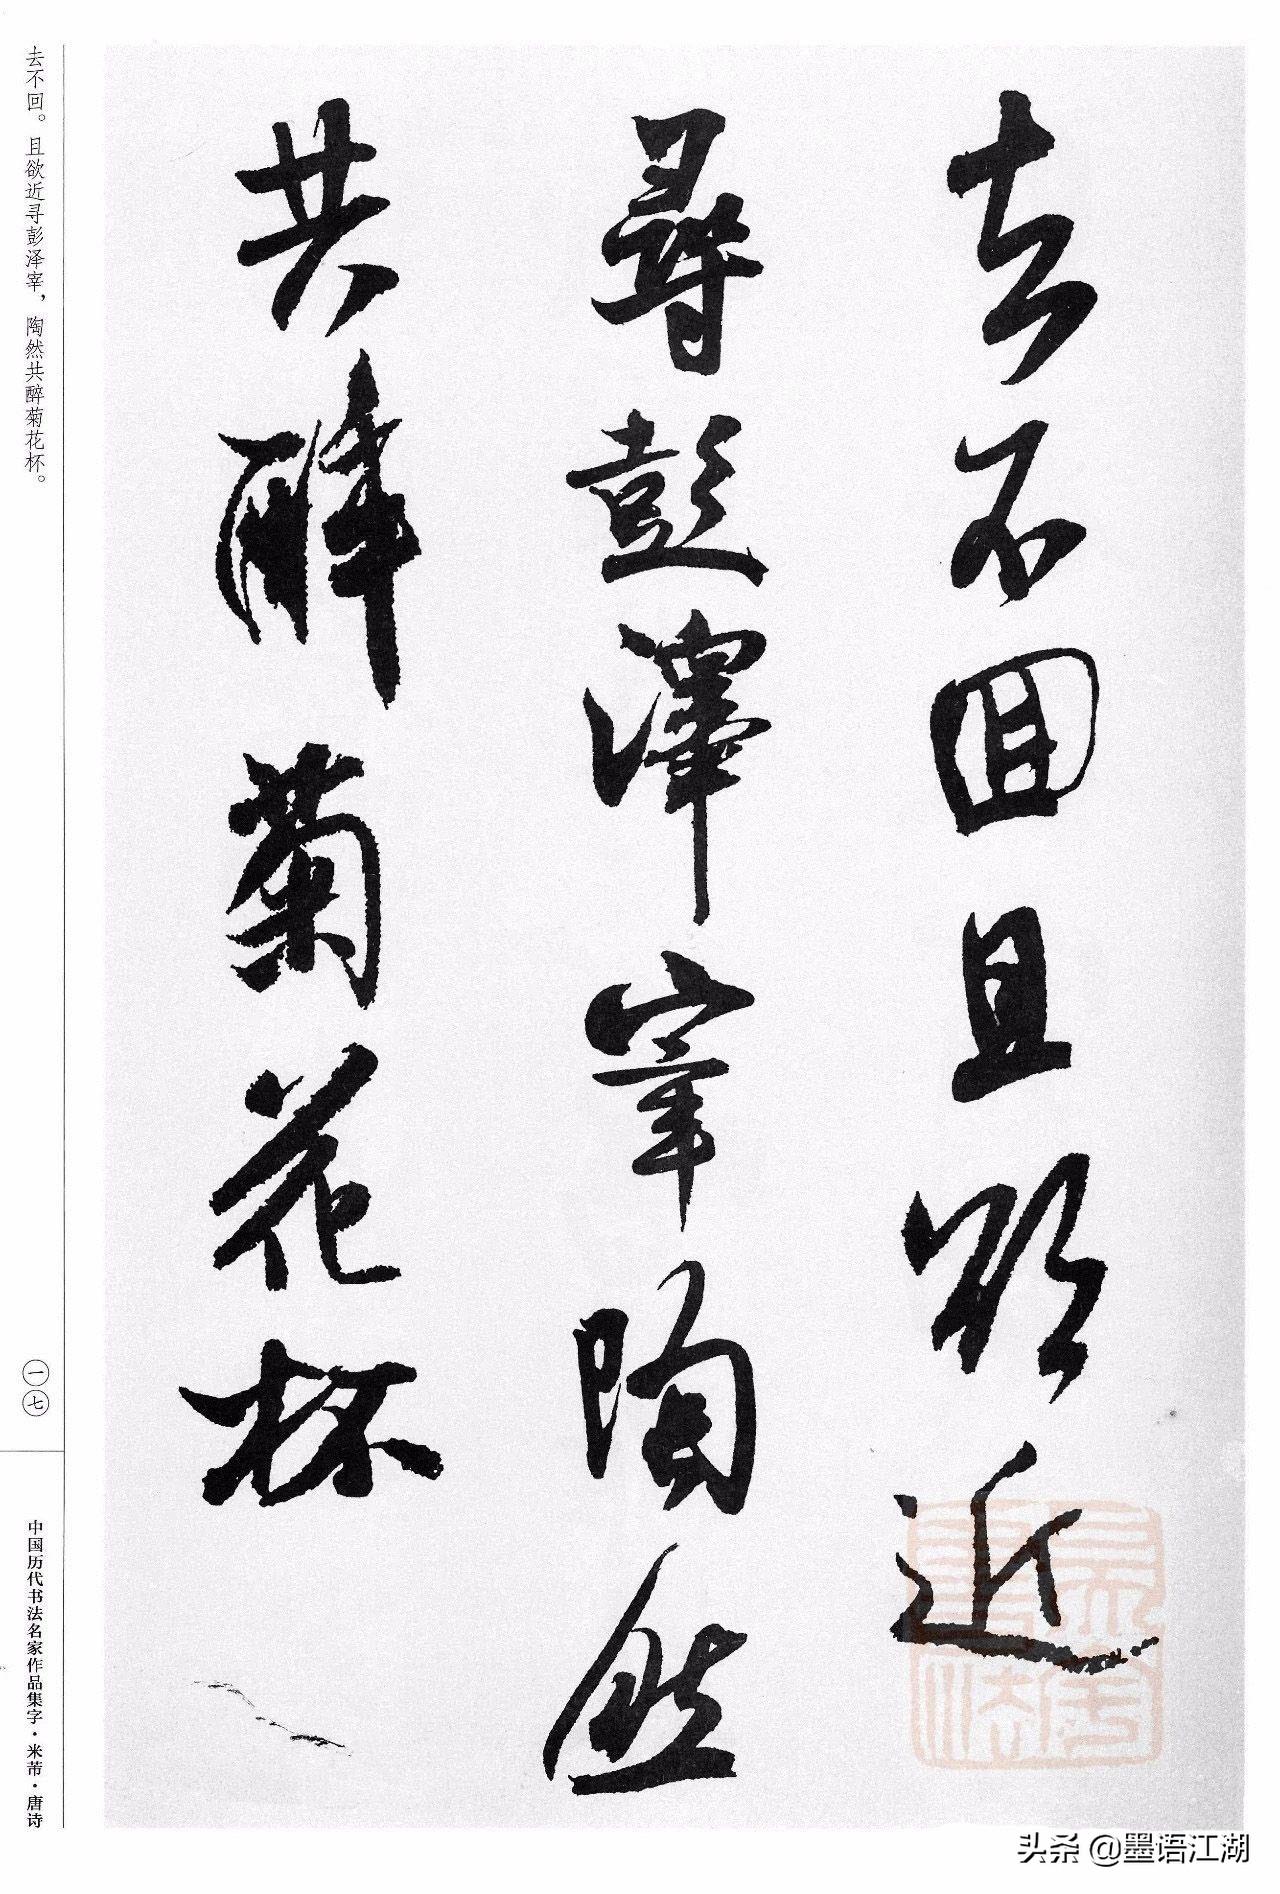 去不回且欲近
尋彭澤宰陶然
共醉菊花杯
去不回。且欲近寻彭泽宰，陶然共醉菊花杯。
一七
中国历代书法名家作品集字·米芾·唐诗
头条 @墨语江湖